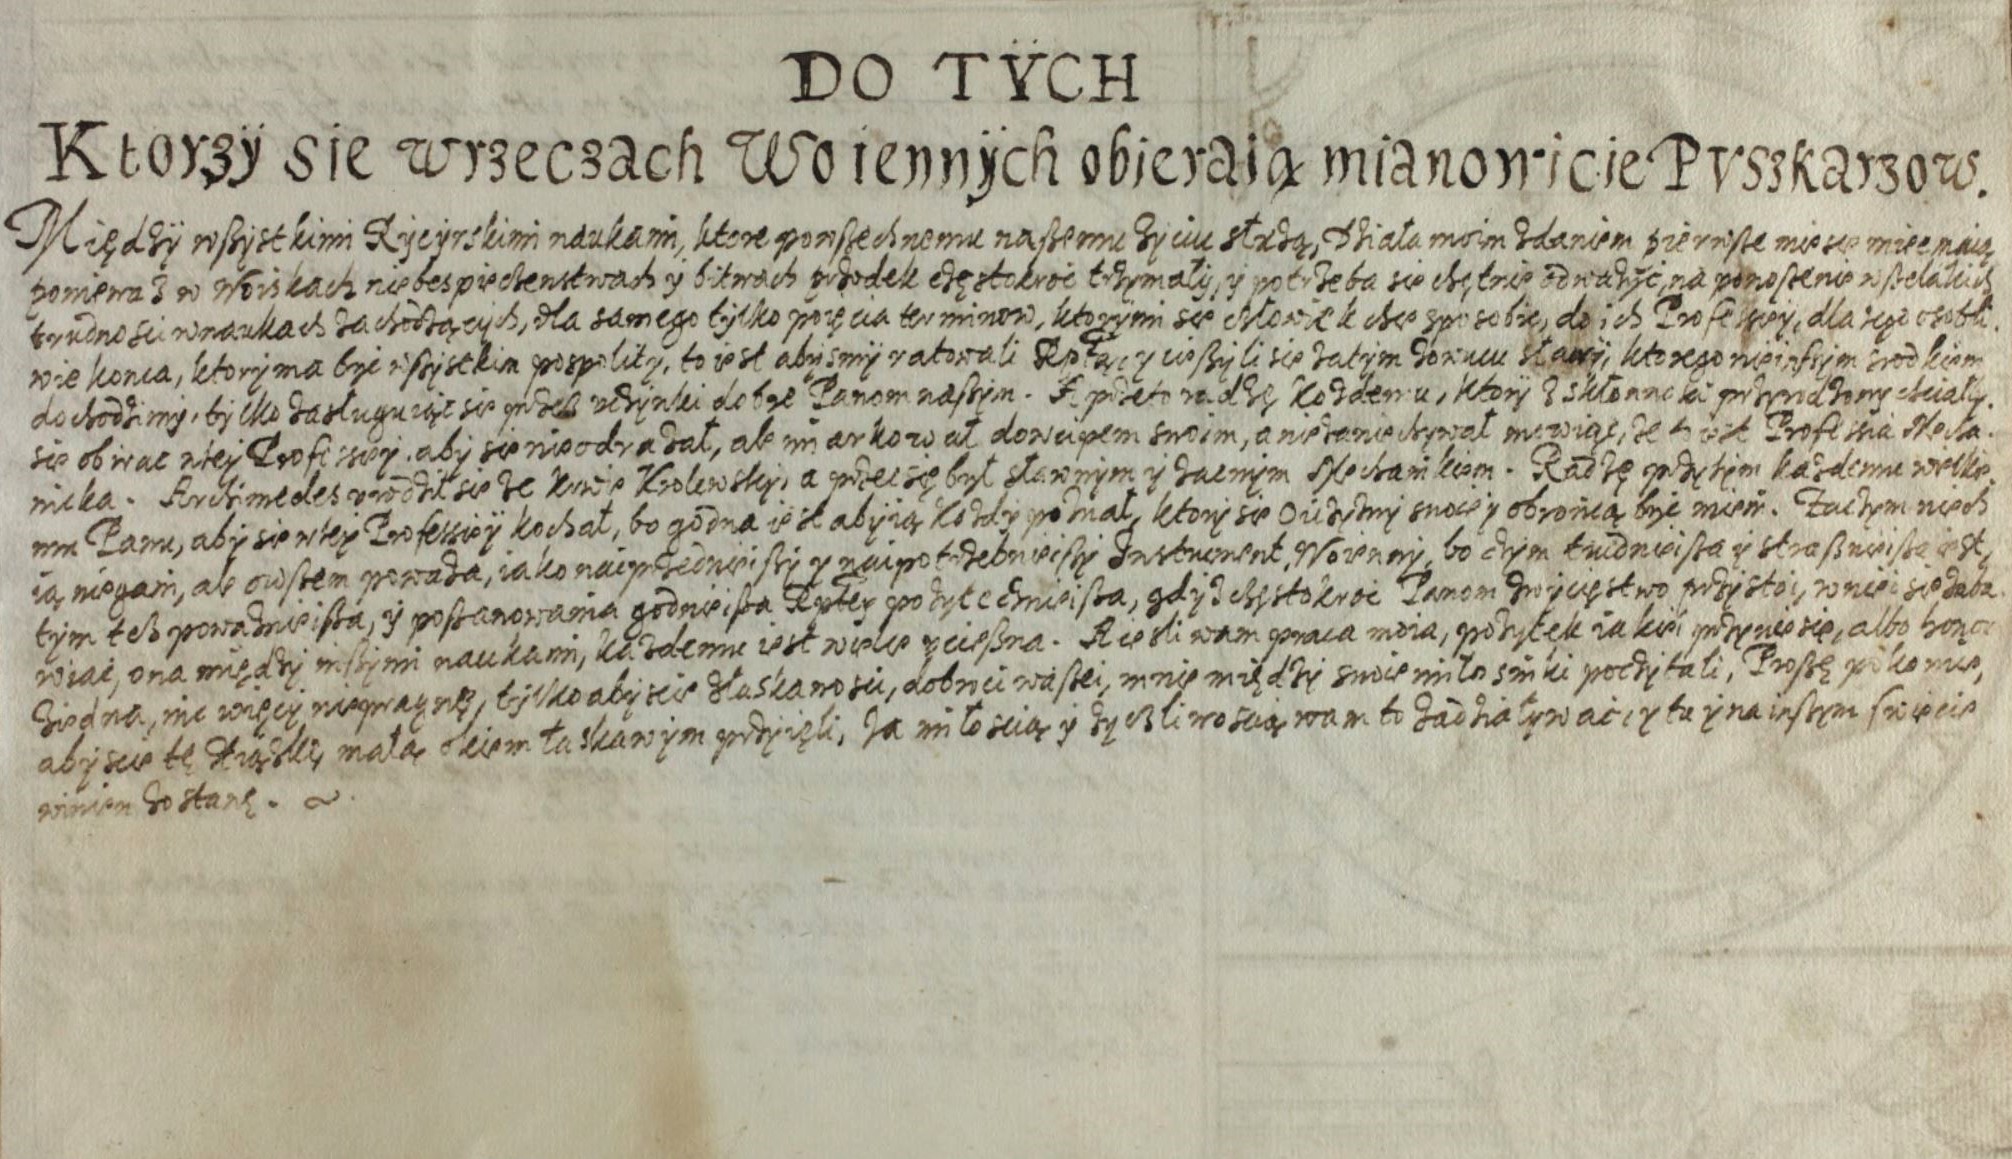 DO TÿCH
Ktorzÿ sie wrzeczach Woiennÿch obieraią mianowicie PVSzkarzow.
Międzÿ wßÿstkimi Rÿcÿrskimi naukami, ktore powßechnemu naßemu żÿciu służą, Działa moim zdaniem pierwße miesce mieć maią
ponieważ w Woiskach niebespieczenstwach ÿ bitwach przodek częstokroć trzÿmałÿ, ÿ potrzeba sie chętnie odważÿć, na ponoßenie wßelakich
trudnosci wnaukach zachodzącÿch, dla samego tÿlko poięcia terminow, ktorÿmi sie człowiek chce sposobić, do ich Professiеÿ, dla iego osobli.
wie konca, ktorÿ ma bÿć wßÿstkim pospolitÿ, to iest abÿsmÿ ratowali Rptą, ÿ cießÿli sie zatÿm sławÿ, ktorego nie inßÿm srodkiem
dochodzimÿ, tÿlko zasługuiąc sie przez vczÿnki dobre Panom naßÿm. A przeto radzę każdemu, ktorÿ z skłonności przÿrodzoneÿ chciałbÿ.
sie obierac wteÿ Professieÿ, abÿ sie nie odrażał, ale miarkował dowcipem swoim, a niezaniechÿwał mowiąc, że to iest Professia Mecha.
nicka. Archimedes vrodził sie ze krwie Krolewskieÿ, a przecię bÿł sławnÿm ÿ zacnÿm Mechanikiem. Radzę przÿtÿm każdemu wielkie
mu Panu, abÿ sie wteÿ Professieÿ kochał, bo godna iest abÿ ią każdÿ poznał, ktorÿ sie Oiczÿznÿ swoieÿ obroncą bÿć mieni. Zaczÿm niech
ią nie gani, ale owßem poważa, iako naiprzednieißÿ ÿ naipotrzebnieißÿ Instrument Woiennÿ, bo czÿm trudnieißa ÿ straßnieißa iest,
tÿm teß poważnieißa, ÿ poßanowania godnieißa Rpteÿ pożÿtecznieißa, gdÿż częstokroć Panom zwÿcięstwo przÿstoi, wnieÿ sie zaba.
wiać, ona międzÿ inßÿmi naukami, każdemu iest wielce ÿcießna. A iesli wam praca moia, pożÿtek iaki przÿniesie, albo honor
ziedna, nic więcÿ niepragnę, tÿlko abÿscie złaskawosci, dobroci waßei, mnie międzÿ swoie miłosniki poczÿtali, Proßę pokornie,
abÿscie tę książkę małą okiem łaskawÿm przÿięli, za miłoscią ÿ żÿczliwoscią wam to zadziaływać, ÿ tu ÿ na inßÿm swiecie
winien zostanę.